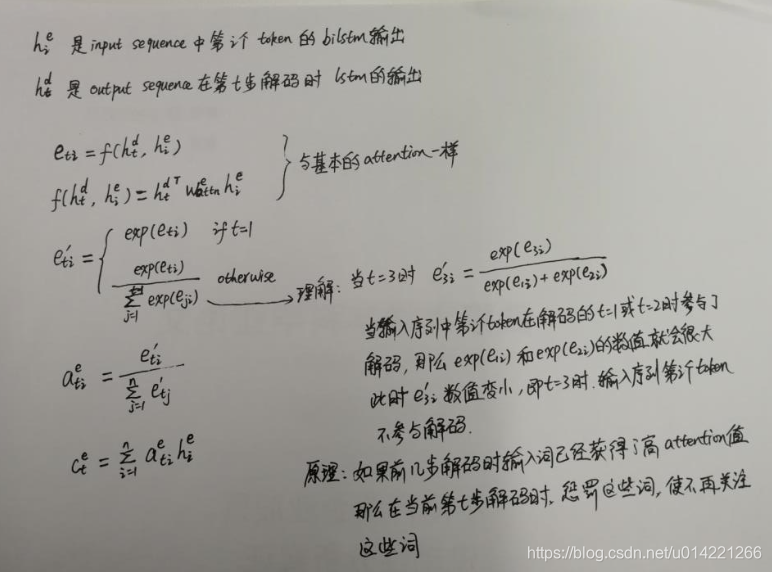 hᵢᵉ 是 input sequence 中第i个 token 的 bilstm 输出
hₜᵈ 是 output sequence 在第t步解码时 lstm的输出
eₜᵢ = f(hₜᵈ, hᵢᵉ)
f(hₜᵈ, hᵢᵉ) = hₜᵈᵀ Wᵉattn hᵢᵉ
} 与基本的attention一样
e'ₜᵢ = { exp(eₜᵢ) if t=1
exp(eₜᵢ) / Σⱼ₌₁ᵗ⁻¹ exp(eⱼᵢ) otherwise
→ 理解: 当t=3时 e'₃ᵢ = exp(e₃ᵢ) / (exp(e₁ᵢ) + exp(e₂ᵢ))
当输入序列中第i个token在解码的t=1或t=2时参与了
解码, 那么 exp(e₁ᵢ) 和exp(e₂ᵢ)的数值就会很大
此时 e'₃ᵢ 数值变小, 即t=3时. 输入序列第i个token
不参与解码.
aₜᵢᵉ = e'ₜᵢ / Σⱼ₌₁ⁿ e'ₜⱼ
cₜᵉ = Σᵢ₌₁ⁿ aₜᵢᵉ hᵢᵉ
原理: 如果前几步解码时输入词已经获得了高attention值
那么在当前第t步解码时, 惩罚这些词, 使不再关注
这些词
https://blog.csdn.net/u014221266